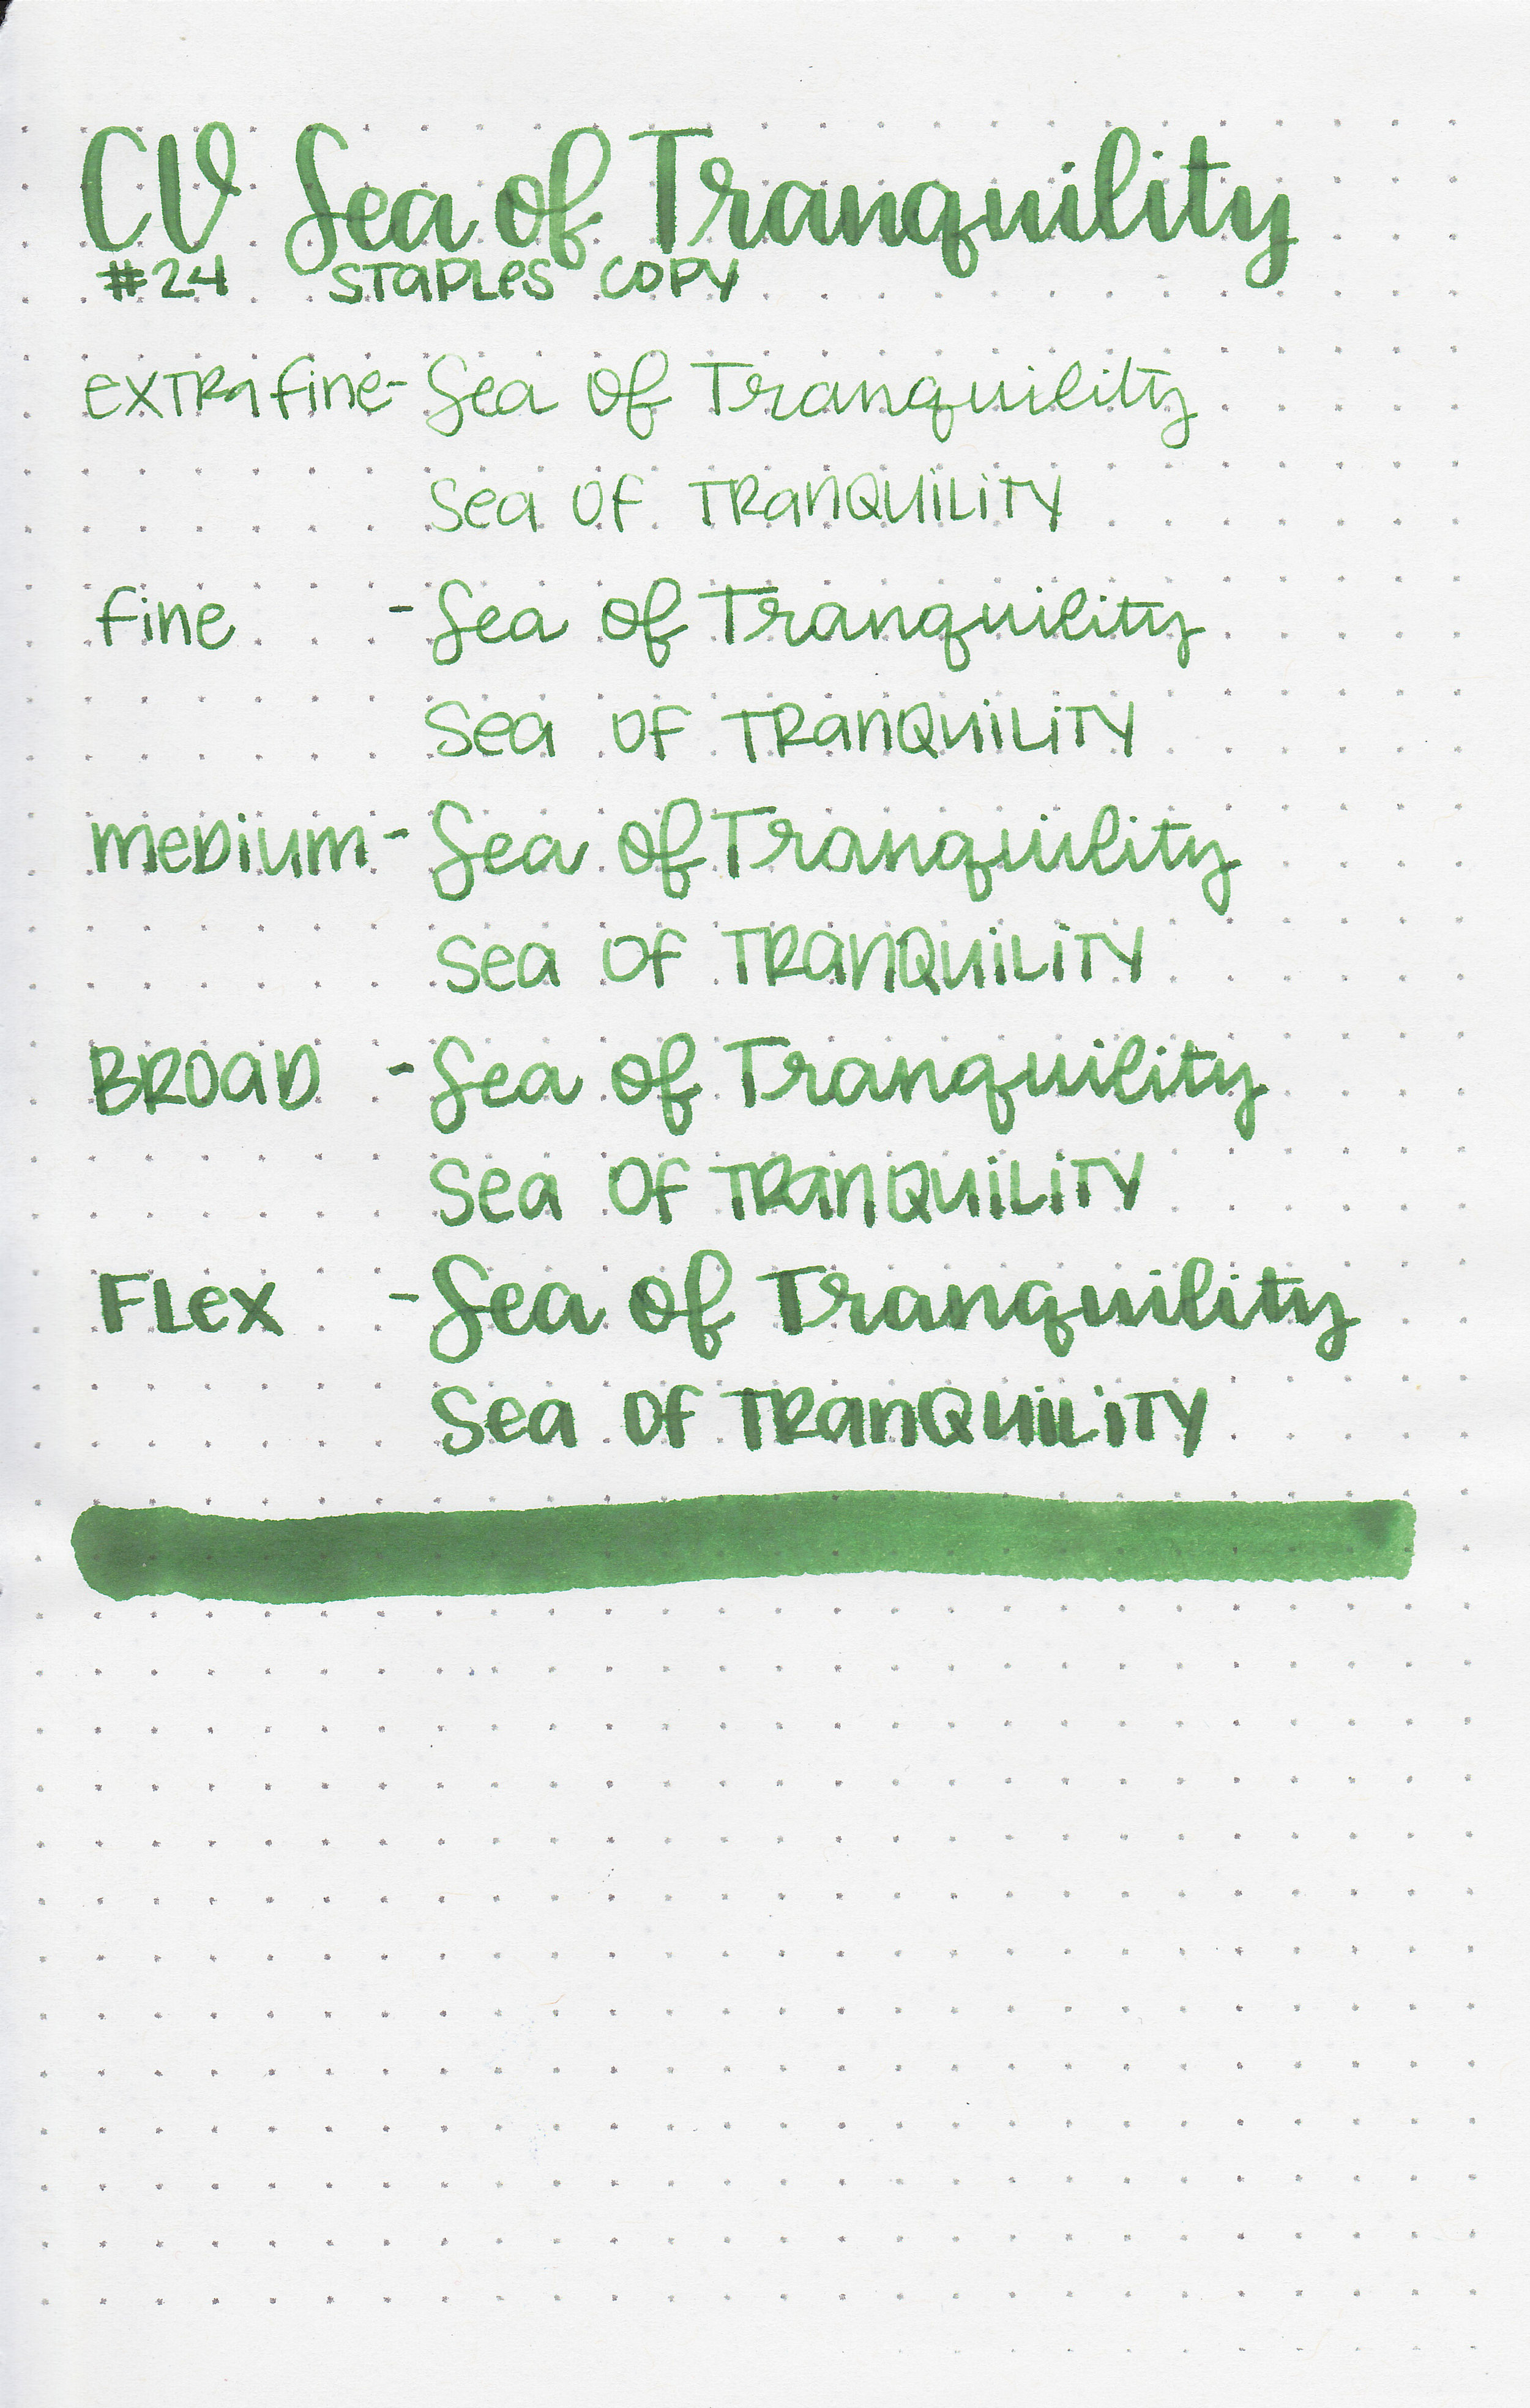 CV Sea of Tranquility
#24 STAPLES COPY
EXTRA FINE - Sea of Tranquility
Sea OF TRANQUILITY
Fine - Sea of Tranquility
Sea OF TRANQUILITY
MEDIUM - Sea of Tranquility
Sea OF TRANQUILITY
BROAD - Sea of Tranquility
Sea OF TRANQUILITY
FLEX - Sea of Tranquility
Sea OF TRANQUILITY